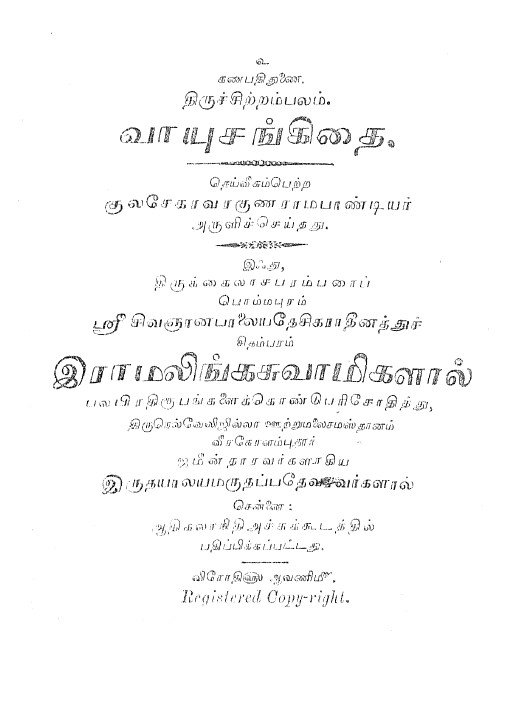 உ
கணபதிதுணை.
திருச்சிற்றம்பலம்.
வாயுசங்கிதை.
தெய்வீகம்பெற்ற
குலசேகரவரகுணராமபாண்டியர்
அருளிச்செய்தது.
இஃது,
திருக்கைலாசபரம்பரைப்
பொம்மபுரம்
ஸ்ரீ சிவஞானபாலையதேசிகராதீனத்துச்
சிதம்பரம்
இராமலிங்கசுவாமிகளால்
பலபிரதிரூபங்களைக்கொண்டுபரிசோதித்து,
திருநெல்வேலிஜில்லா ஊற்றுமலைசமஸ்தானம்
வீரகேரளம்புதூர்
ஜமீன்தாரவர்களாகிய
இருதயாலயமருதப்பதேவரவர்களால்
சென்னை:
ஆதிகலாநிதிஅச்சுக்கூடத்தில்
பதிப்பிக்கப்பட்டது.
விரோதிவ௵ ஆவணிமீ.
Registered Copy-right.